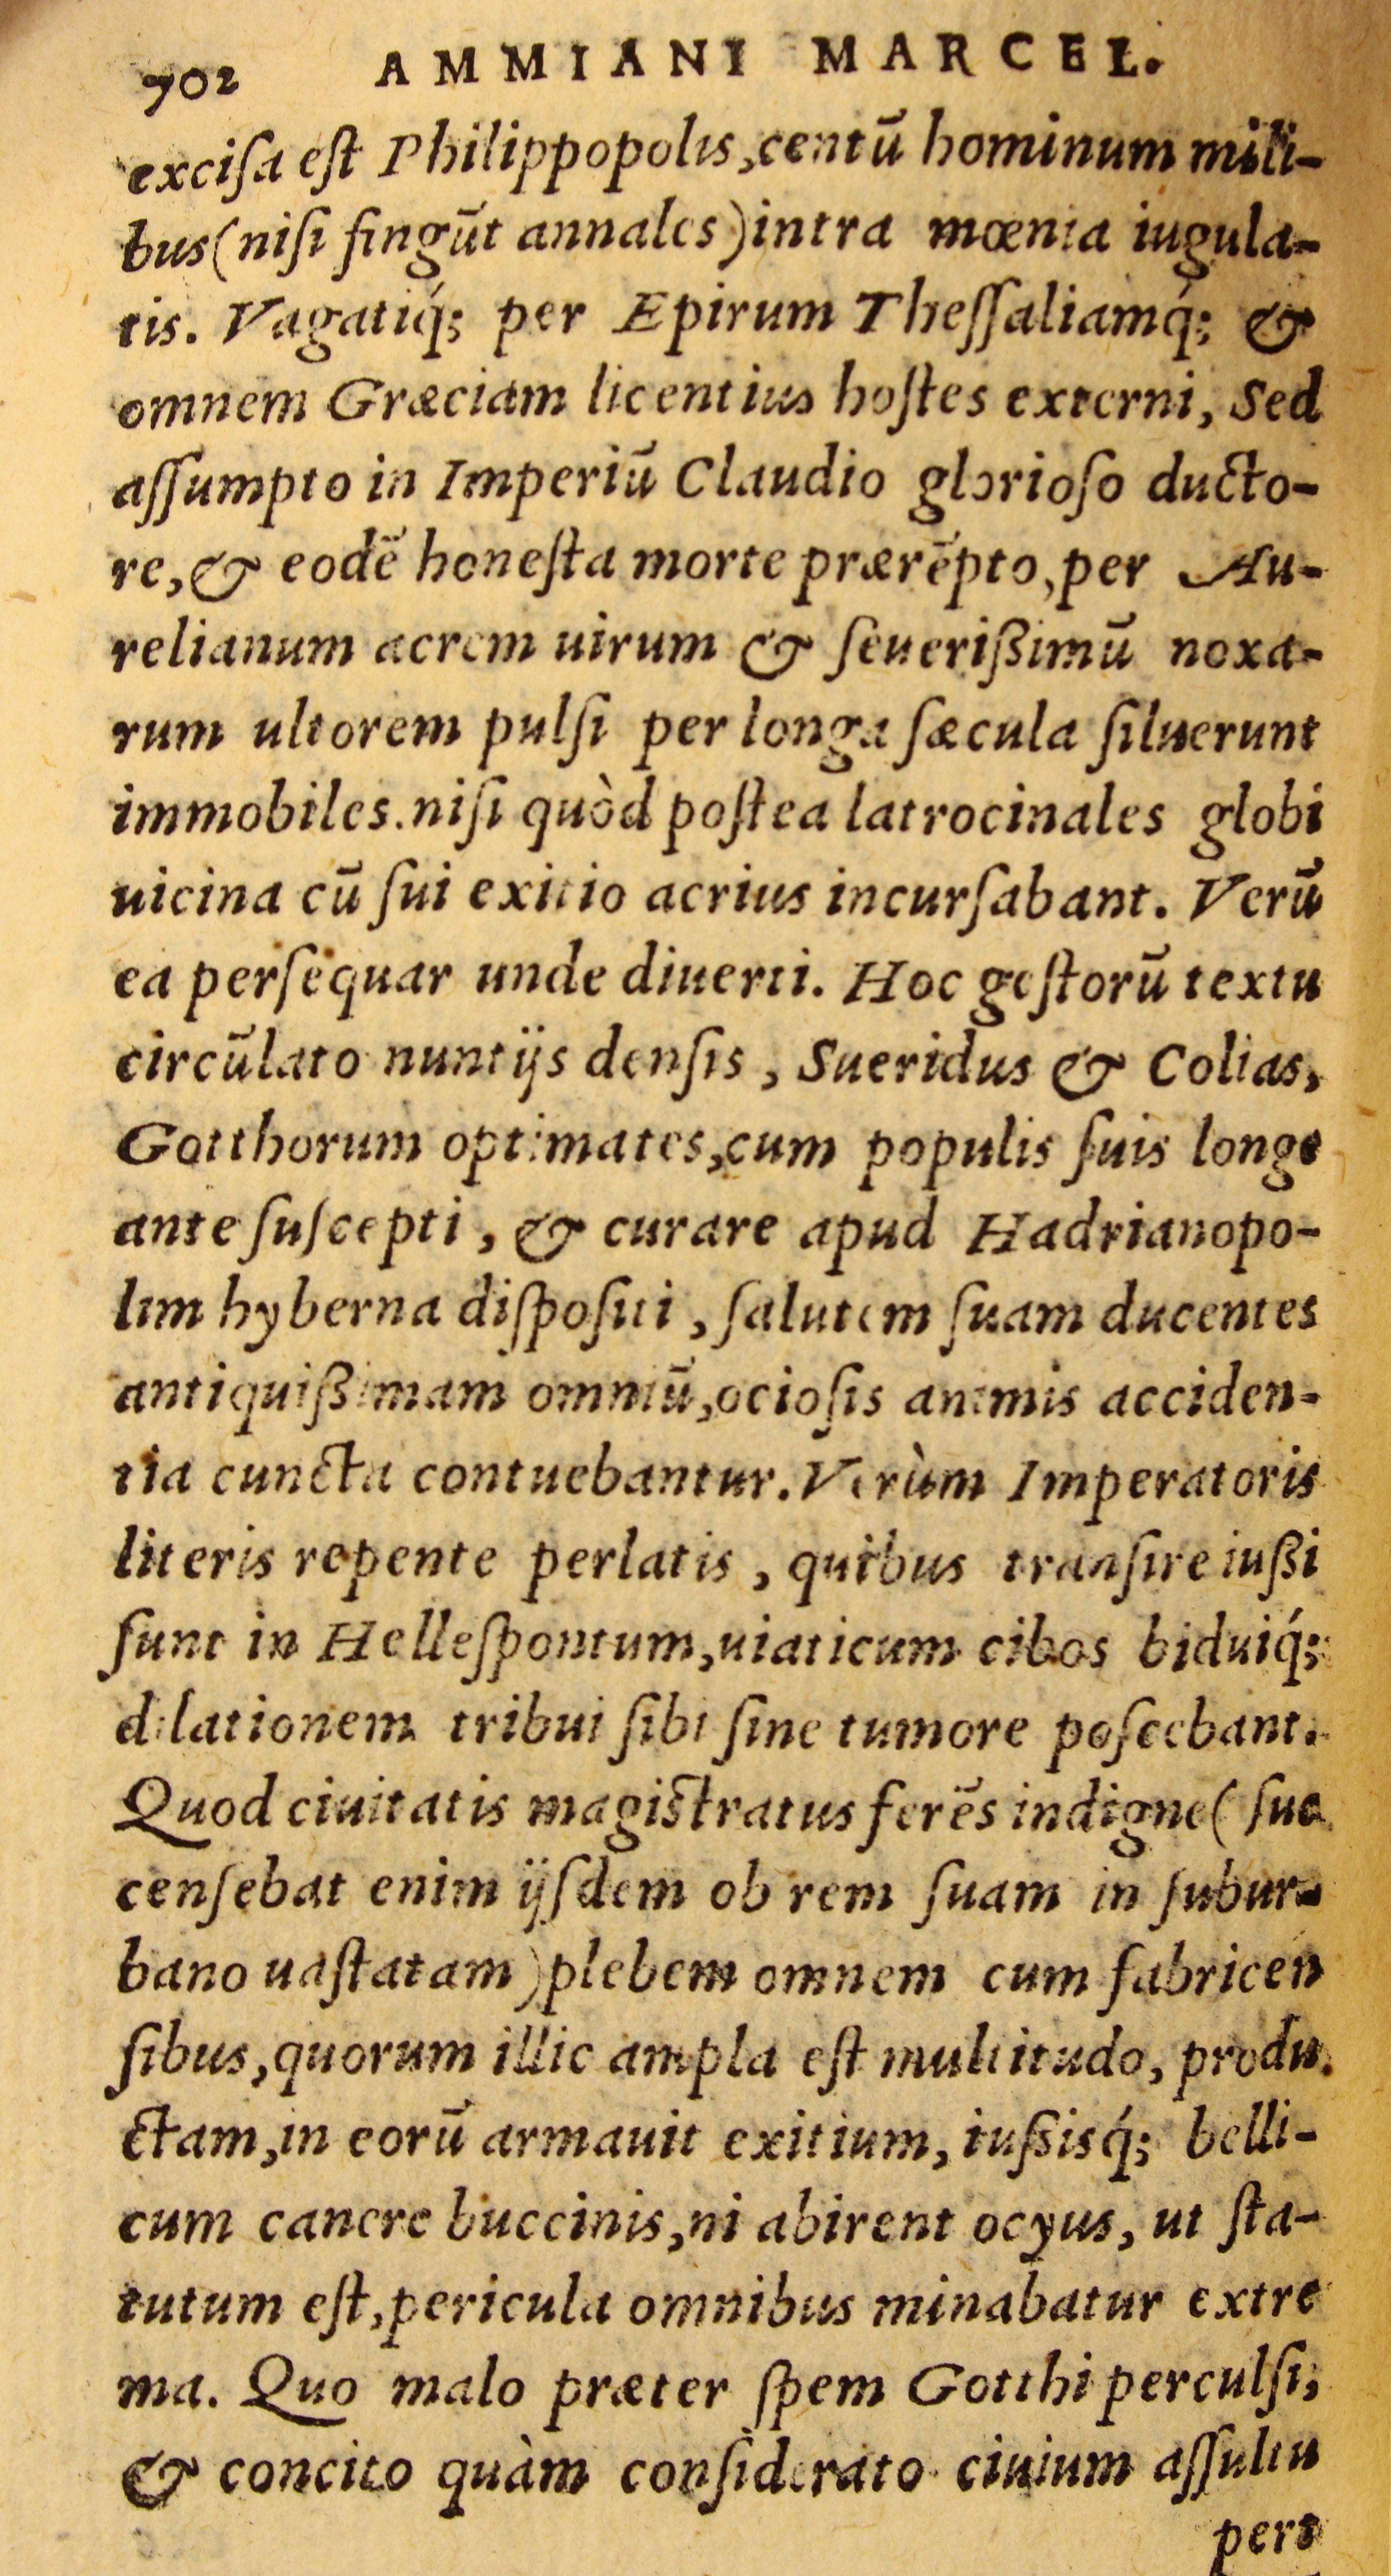 702 AMMIANI MARCEL.
excisa est Philippopolis, centū hominum mili-
bus (nisi fingūt annales) intra mœnia iugula-
tis. Vagatiq́; per Epirum Thessaliamq́; &
omnem Græciam licentius hostes externi, Sed
assumpto in Imperiū Claudio glorioso ducto-
re, & eodē honesta morte prærēpto, per Au-
relianum acrem uirum & seuerißimū noxa-
rum ultorem pulsi per longa sæcula siluerunt
immobiles. nisi quòd postea latrocinales globi
uicina cū sui exitio acrius incursabant. Verū
ea persequar unde diuerti. Hoc gestorū textu
circūlato nuntijs densis, Sueridus & Colias,
Gotthorum optimates, cum populis suis longe
ante suscepti, & curare apud Hadrianopo-
lim hyberna dispositi, salutem suam ducentes
antiquißimam omniū, ociosis animis acciden-
tia cuncta contuebantur. Verùm Imperatoris
literis repente perlatis, quibus transire iußi
sunt in Hellespontum, uiaticum cibos biduiq́;
dilationem tribui sibi sine tumore poscebant.
Quod ciuitatis magistratus ferēs indigne (suc
censebat enim ijsdem ob rem suam in subur-
bano uastatam) plebem omnem cum fabricen
sibus, quorum illic ampla est multitudo, produ
ctam, in eorū armauit exitium, iußisq́; belli-
cum canere buccinis, ni abirent ocyus, ut sta-
tutum est, pericula omnibus minabatur extre
ma. Quo malo præter spem Gotthi perculsi,
& concito quàm considerato ciuium assultu
pert